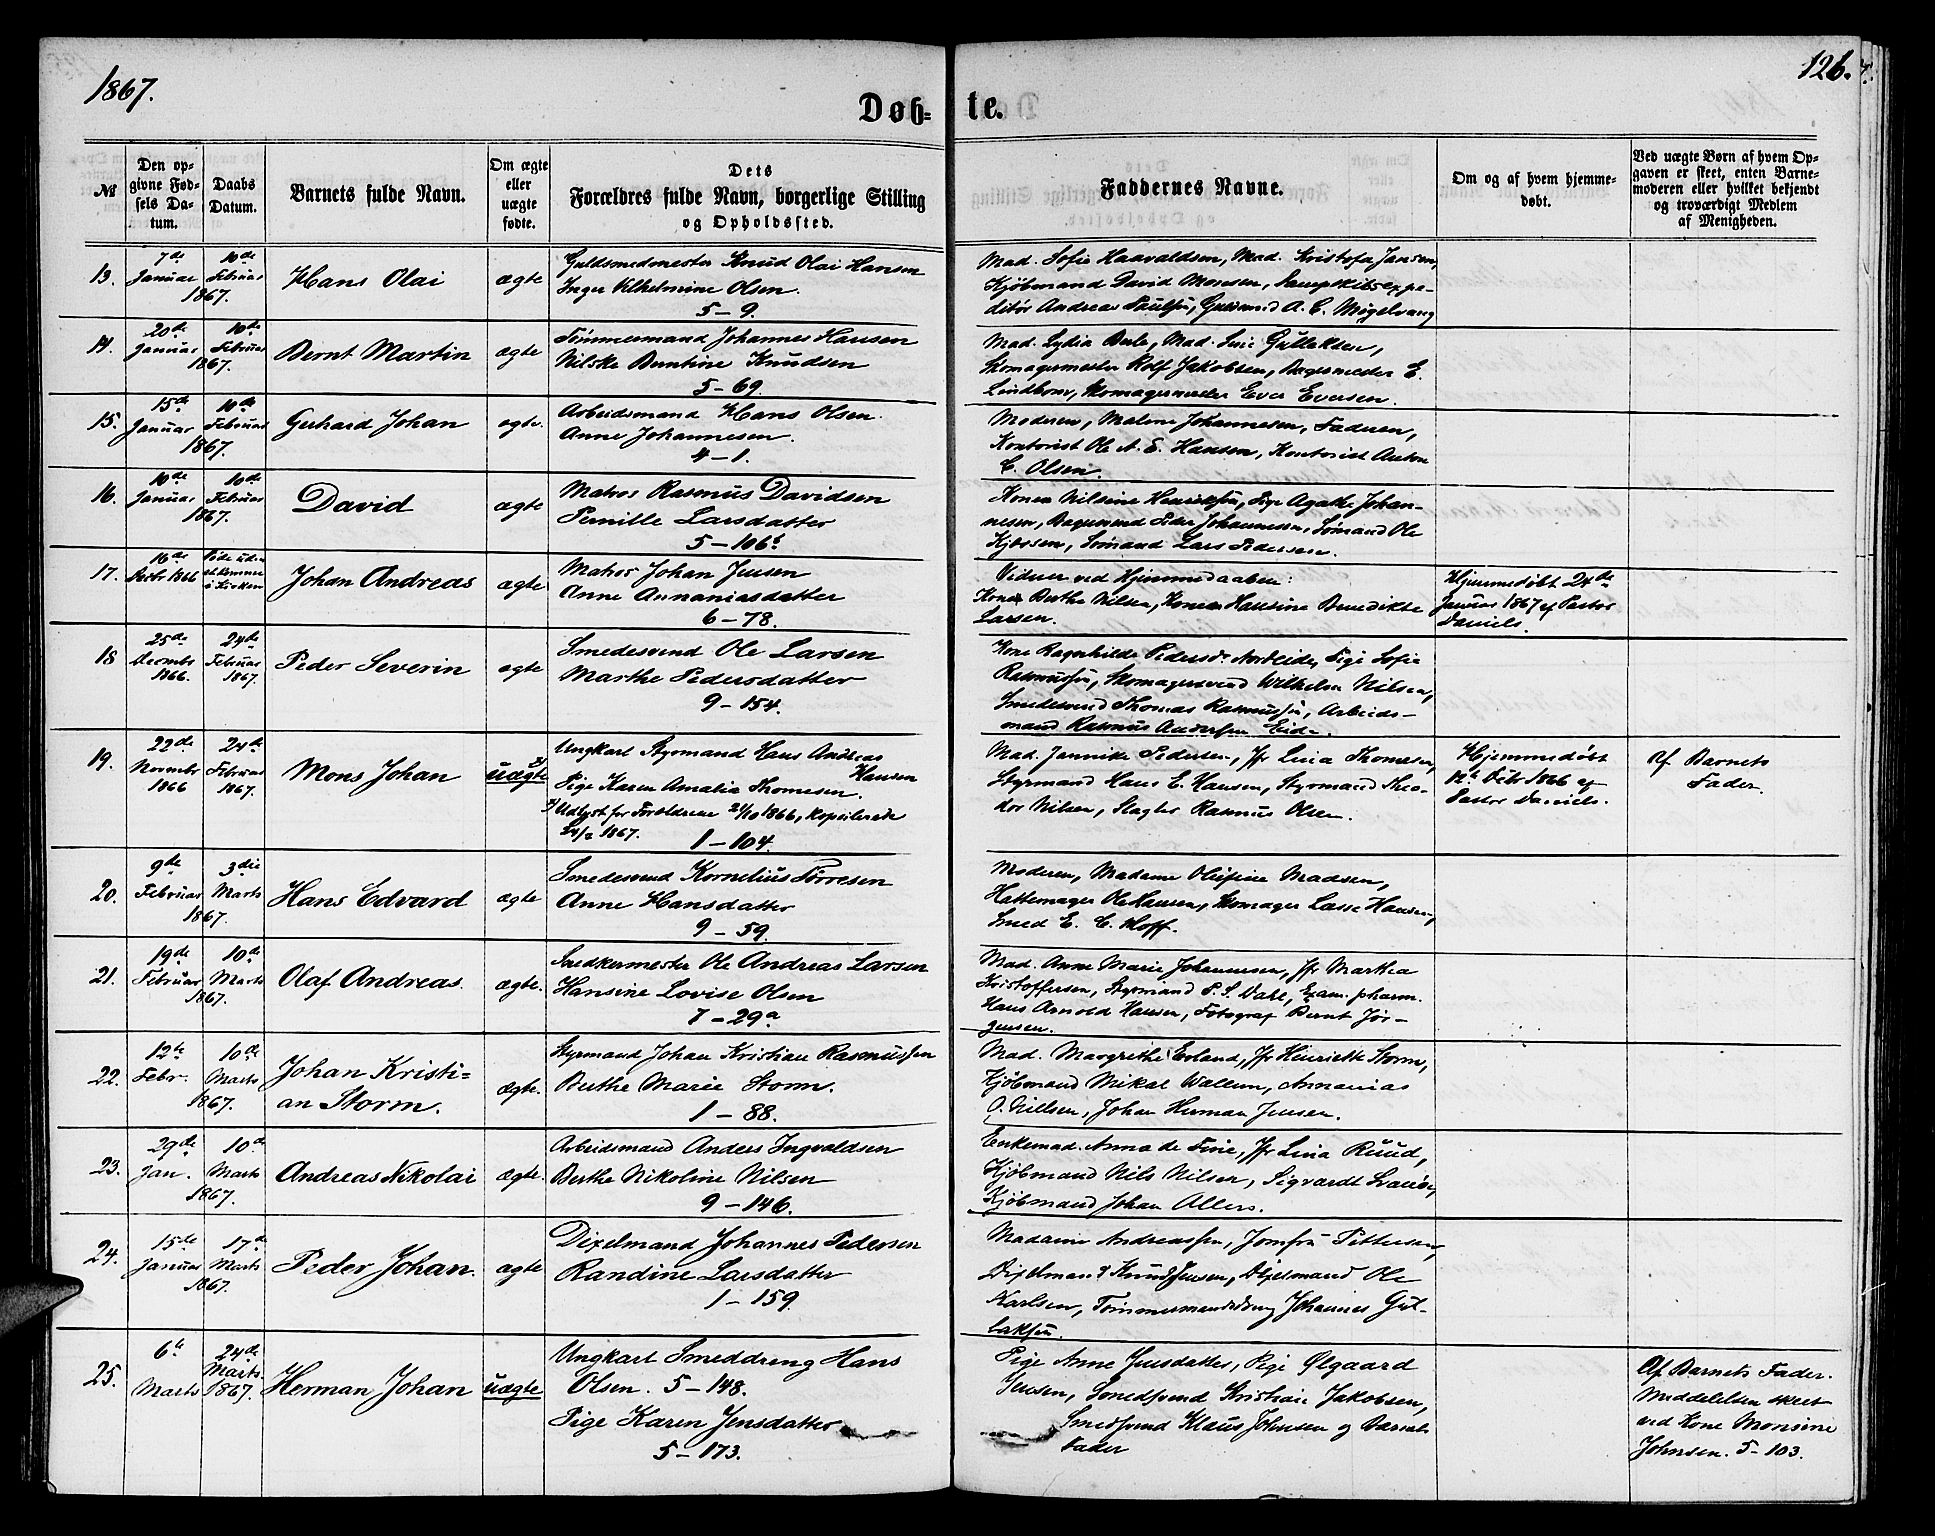 1867.
126.
Døb-
te.
№
Den op-
givne Fød-
sels Da-
tum.
Daabs
Datum.
Barnets fulde Navn.
Om ægte
eller
uægte
fødte.
Dets
Forældres fulde Navn, borgerlige Stilling
og Opholdssted.
Faddernes Navne.
Om og af hvem hjemme-
døbt.
Ved uægte Børn af hvem Op-
gaven er skeet, enten Barne-
moderen eller hvilket bekjendt
og troværdigt Medlem
af Menigheden.
13.
7de
Januar
10de
Februar
1867.
Hans Olai
ægte
Guldsmedmester Knud Olai Hansen
Inger Vilhelmine Olsen.
5 – 9.
Mad. Sofie Haavaldsen, Mad. Kristofa Jansen,
Kjøbmand David Monsen, Dampskibsexpe-
ditør Andreas Paulsen, Guldsmed A. E. Møgelvang
14.
20de
Januar
10de
Februar
1867.
Bernt Martin
ægte
Tømmermand Johannes Hansen
Nilske Berntine Knudsen
5 – 69.
Mad. Lydia Berle, Mad. Sine Gullaksen,
Skomagermester Rolf Jakobsen, Bagermester E.
Lindbom, Skomagermester Ever Eversen.
15.
15de
Januar
10de
Februar
1867.
Gerhard Johan
ægte.
Arbeidsmand Hans Olsen.
Anne Johannesen.
4 – 1.
Moderen, Malene Johannesen, Faderen,
Kontorist Ole A. E. Hansen, Kontorist Anton
C. Olsen.
16.
10de
Januar
10de
Februar
1867.
David
ægte
Matros Rasmus Davidsen
Pernille Larsdatter
5 – 106b
Konen Nilsine Henriksen, Pige Agathe Johan-
nesen, Bagersvend Peder Johannessen, Sømand Ole
Kjøssen, Sømand Lars Pedersen.
17.
16de
Oktbr 1866
Døde uden
at komme
i Kirken
Johan Andreas
ægte
Matros Johan Jensen
Anne Annaniasdatter
6 – 78.
Vidner ved Hjemmedaaben:
Konen Berthe Nilsen, Konen Hansine Benedikte
Larsen.
Hjemmedøbt 24de
Januar 1867 af Pastor
Daniels.
18
25de
Decembr
1866.
24de
Februar
1867.
Peder Severin
ægte
Smedesvend Ole Larsen
Marthe Pedersdatter
9 – 154.
Kone Ragnhilde Pedersdr. Nordeide, Pige Sofie
Rasmussen, Skomagersvend Wilhelm Nilsen,
Smedesvend Thomas Rasmussen, Arbeids-
mand Rasmus Andersen Eide.
19.
22de
Novembr
1866
24de
Februar
1867.
Mons Johan
uægte
Ungkarl Styrmand Hans Andreas
Hansen
Pige Karen Amalia Thomesen.
Udlyst for Forældrene 21/10 1866, kopulerede
1867.
1 – 104.
Mad. Jannike Pedersen, Jfr Lina Thomesen,
Styrmand Hans E. Hansen, Styrmand Theo-
dor Nilsen, Slagter Rasmus Olsen.
Hjemmedøbt
12te Dcbr 1866 af
Pastor Daniels.
Af Barnets
Fader.
20.
9de
Februar
1867.
3die
Marts
Hans Edvard
ægte
Smedesvend Kornelius Tørresen
Anne Hansdatter
9 – 59.
Moderen, Madame Olufine Madsen,
Hattemager Ole Hansen, Skomager Lasse Hansen,
Smed E. C. Hoff.
21.
19de
Februar
10de
Marts
1867.
Olaf Andreas.
ægte.
Snedkermester Ole Andreas Larsen
Hansine Lovise Olsen
7 – 29a
Mad. Anne Marie Johannesen, Jfr Marthea
Kristoffersen, Styrmand P. S. Dahl, Exam. pharm.
Hans Arnold Hansen, Fotograf Bernt Jør-
gensen.
22.
12te
Febr.
10de
Marts
1867.
Johan Kristi-
an Storm.
ægte.
Styrmand Johan Kristian Rasmussen
Berthe Marie Storm.
1 – 88.
Mad. Margrethe Evland, Jfr Henriette Storm,
Kjøbmand Mikal Wallum, Annanias
O. Nielsen, Johan Herman Jensen.
23.
29de
Jan.
10de
Marts
1867.
Andreas Nikolai
ægte.
Arbeidsmand Anders Ingvaldsen
Berthe Nikoline Nilsen
9 – 146.
Enkemad. Anna de Fine, Jfr Lina Ruud,
Kjøbmand Nils Nilsen, Sigvardt
Kjøbmand Johan Ollers.
24.
15de
Januar
17de
Marts
1867.
Peder Johan.
ægte
Dixelmand Johannes Pedersen
Randine Larsdatter
1 – 159.
Madame Andreassen, Jomfru Pettersen,
Dixelmand Knud Jensen, Dixelmand Ole
Karlsen, Tømmermandsdreng Johannes Gul-
laksen.
25.
6te
Marts
24de
Marts
1867.
Herman Johan
uægte
Ungkarl Smeddreng Hans
Olsen. 5 – 148.
Pige Karen Jensdatter
5 – 173.
Pige Anne Jensdatter, Pige Ølgaard
Jensen, Smedsvend Kristian Jakobsen,
Smedsvend Klaus Johnsen og Barnets
Fader
Af Barnets Fader.
Meddelelsen skeet
ved Kone Monsine
Johnsen. 5 – 103.